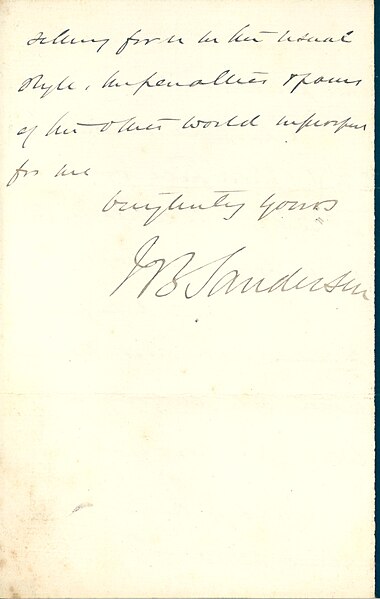 setting forth in his usual
style, the penalties & pains
of the other world in prospect
for me
very truly yours
JB Sanderson